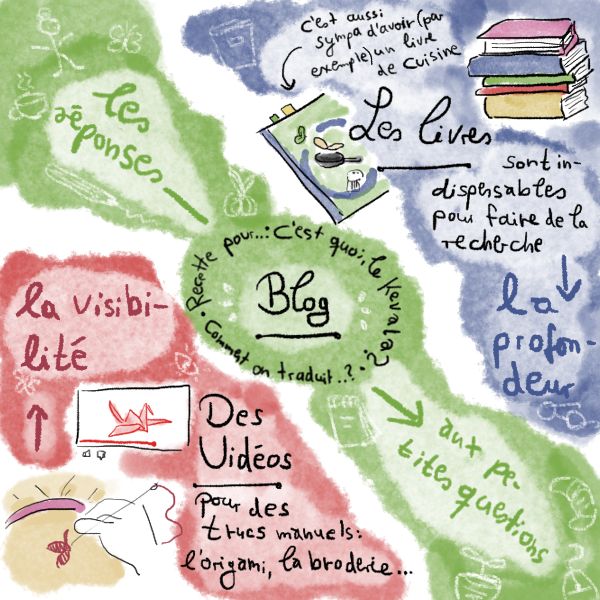 c'est aussi
sympa d'avoir (par
exemple) un livre
de cuisine
Les livres
sont in-
dispensables
pour faire de la
recherche
la
profon-
deur
les
réponses
Recette pour...: C'est quoi, le Kevala?
Comment on traduit..?
Blog
aux pe-
tites questions
la visibi-
lité
Des
Vidéos
pour des
trucs manuels:
l'origami, la broderie...